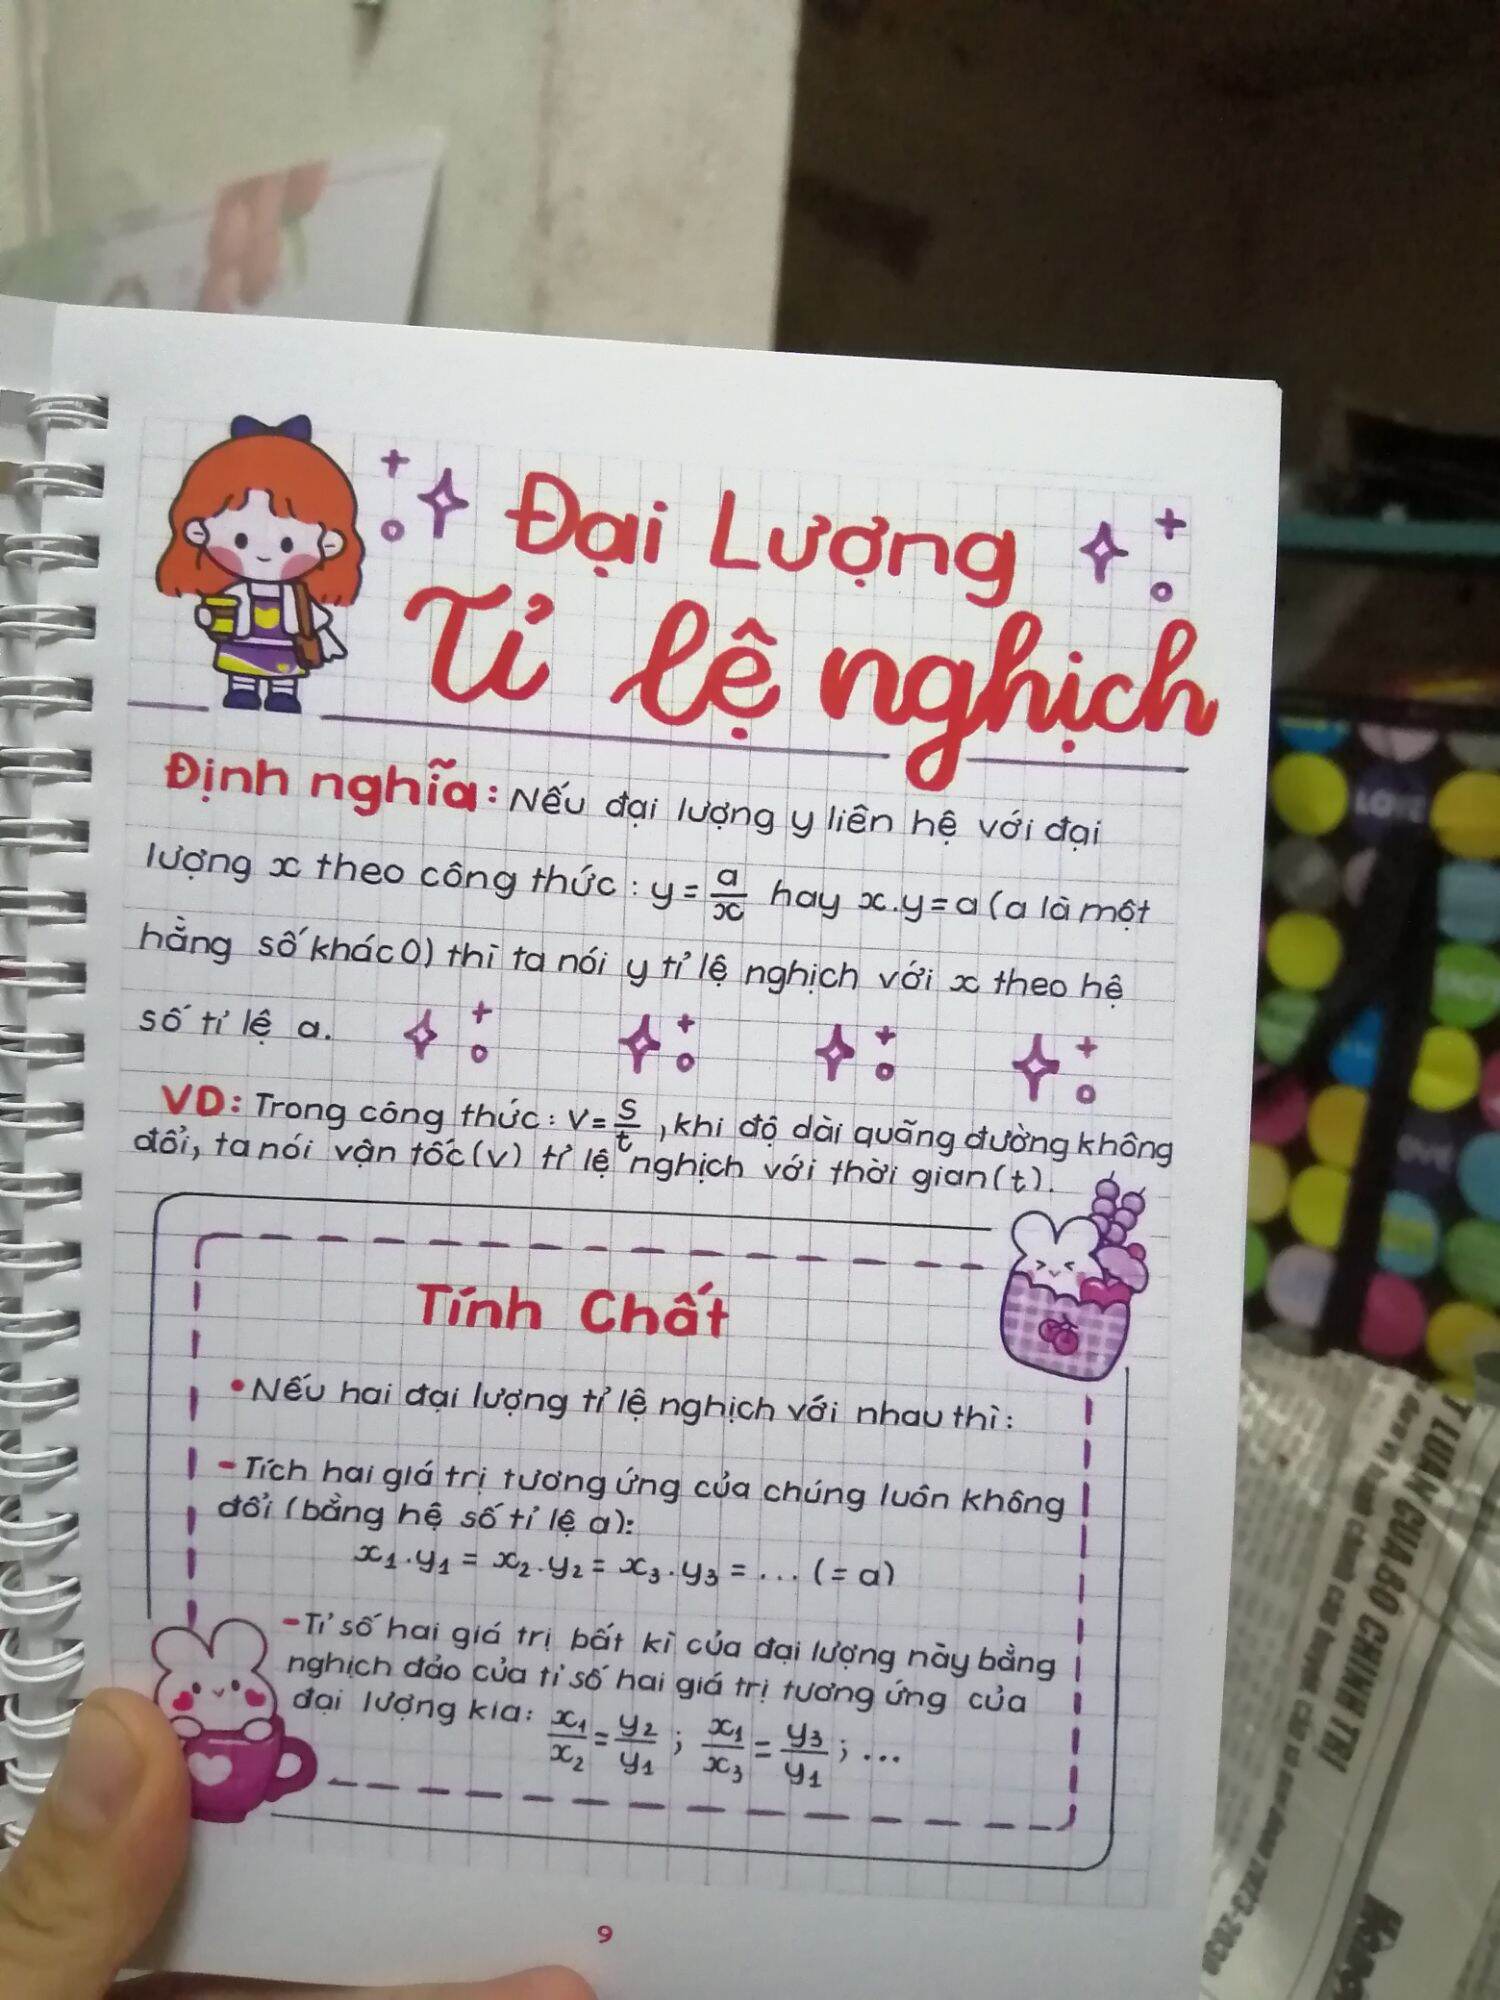 Đại Lượng
Tỉ lệ nghịch
Định nghĩa: Nếu đại lượng y liên hệ với đại
lượng x theo công thức: y = a/x hay x.y = a (a là một
hằng số khác 0) thì ta nói y tỉ lệ nghịch với x theo hệ
số tỉ lệ a.
VD: Trong công thức: v = s/t, khi độ dài quãng đường không
đổi, ta nói vận tốc (v) tỉ lệ nghịch với thời gian (t).
Tính Chất
• Nếu hai đại lượng tỉ lệ nghịch với nhau thì:
- Tích hai giá trị tương ứng của chúng luôn không
đổi (bằng hệ số tỉ lệ a):
x₁.y₁ = x₂.y₂ = x₃.y₃ = ... (= a)
- Tỉ số hai giá trị bất kì của đại lượng này bằng
nghịch đảo của tỉ số hai giá trị tương ứng của
đại lượng kia: x₁/x₂ = y₂/y₁ ; x₁/x₃ = y₃/y₁ ; ...
9
LOVE
T LUẬN CỦA BỘ CHÍNH TRỊ